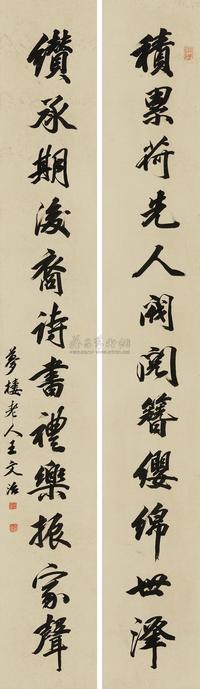 積累荷先人閥閱簪纓綿世澤
纘承期後裔詩書禮樂振家聲
夢樓老人王文治